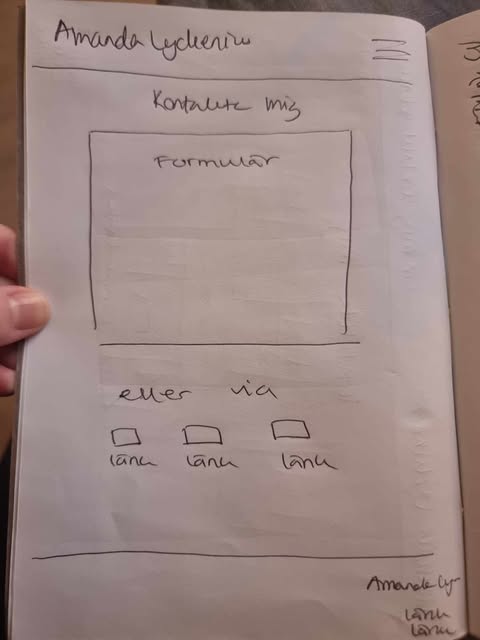 Amanda Lyckeniw
Kontakta mig
Formulär
eller via
länk länk länk
Amanda Ly
länk
länk